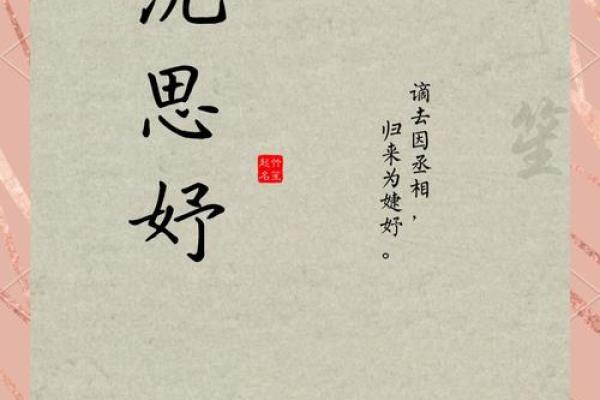 思妤
竹笙
起名
谪去因丞相，
归来为婕妤。
笙